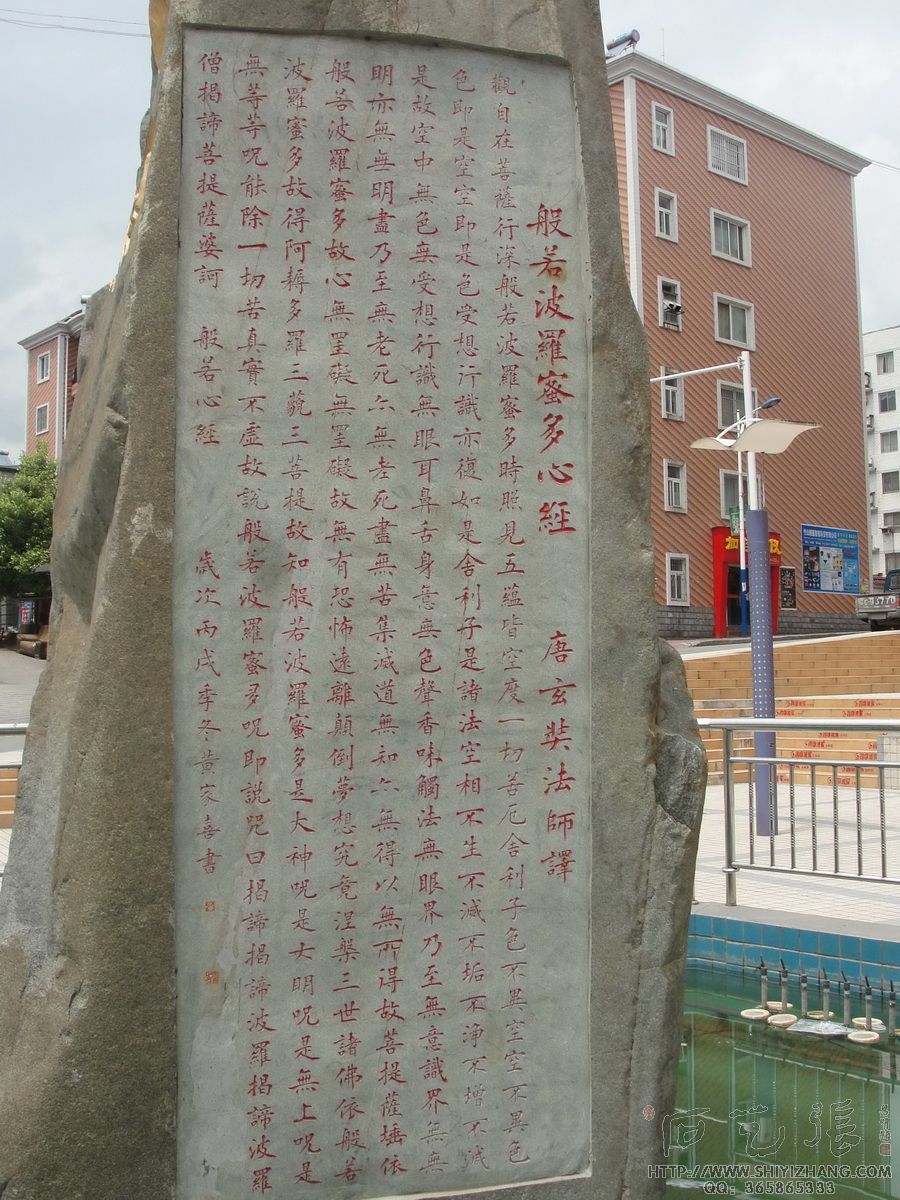 般若波羅蜜多心經 唐玄奘法師譯
觀自在菩薩行深般若波羅蜜多時照見五蘊皆空度一切苦厄舍利子色不異空空不異色
色即是空空即是色受想行識亦復如是舍利子是諸法空相不生不滅不垢不淨不增不減
是故空中無色無受想行識無眼耳鼻舌身意無色聲香味觸法無眼界乃至無意識界無無
明亦無無明盡乃至無老死亦無老死盡無苦集滅道無知亦無得以無所得故菩提薩埵依
般若波羅蜜多故心無罣礙無罣礙故無有恐怖遠離顛倒夢想究竟涅槃三世諸佛依般若
波羅蜜多故得阿耨多羅三藐三菩提故知般若波羅蜜多是大神咒是大明咒是無上咒是
無等等咒能除一切苦真實不虛故說般若波羅蜜多咒即說咒曰揭諦揭諦波羅揭諦波羅
僧揭諦菩提薩婆訶 般若心經 歲次丙戌季冬黃家喜書
石艺張
HTTP://WWW.SHIYIZHANG.COM/
QQ: 365865333